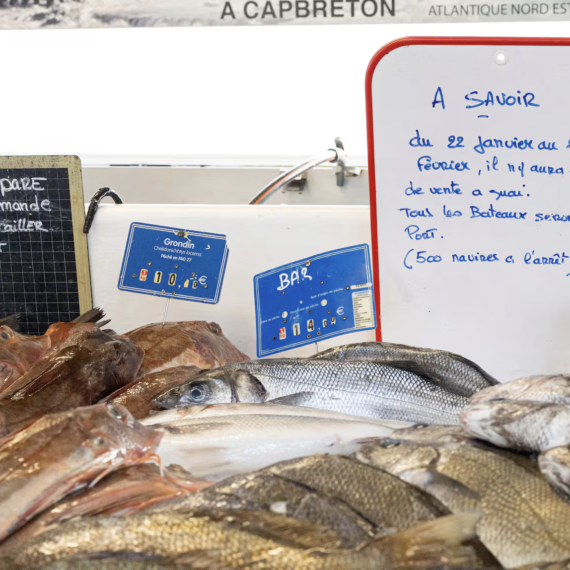 A CAPBRETON
ATLANTIQUE NORD EST
PARE
mande
ailler
Grondin
Chelidonichthys lucerna
Pêché en FAO 27
10.
€
BAR
14.
€
A SAVOIR
du 22 janvier au
février, il n'y aura
de vente a quai.
Tous les Bateaux
Port.
(500 navires a l'arrêt)